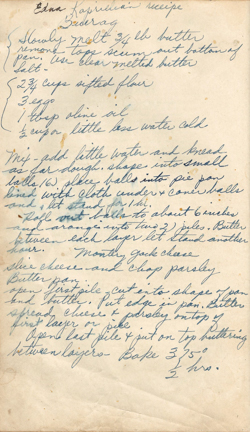 Edna Koprulian recipe
Suberag
Slowly melt 3/4 lb butter
remove tops scum out bottom of
pan. Use clear melted butter
salt -
2 3/4 cups sifted flour
3 eggs
1 tbsp olive oil
1/2 cup or little less water cold
Mix - add little water and knead
as for dough. shape into small
balls (6) place balls into pie pan
lined with cloth under & cover balls
and let stand for 1 hr.
Roll out balls to about 6 inches
and arrange into two 3 piles. Butter
between each layer let stand another
hour. Monterey jack cheese
slice cheese and chop parsley
Butter pan
open first pile - cut into shape of pan
end butter. Put edge in pan. Butter
spread cheese & parsley on top of
first layer or pile
Open last pile & put on top buttering
between layers - Bake 375°
1/2 hrs.